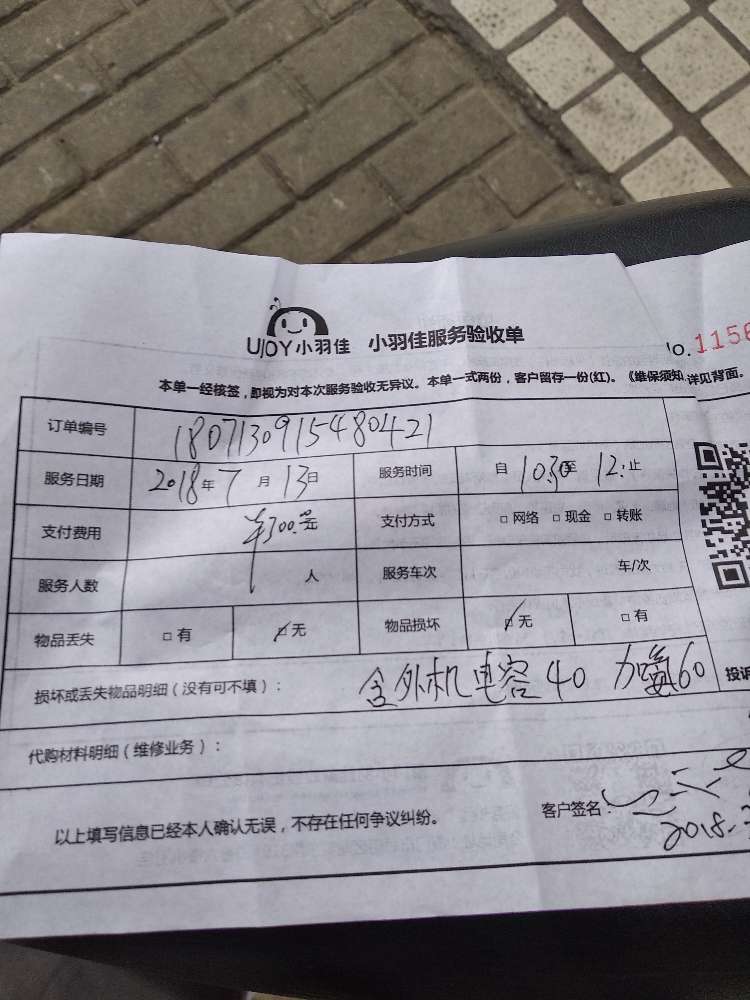 UJOY小羽佳 小羽佳服务验收单
No. 1156
本单一经核签，即视为对本次服务验收无异议。本单一式两份，客户留存一份(红)。《维保须知 详见背面。
订单编号 1807130915480421
服务日期 2018年7月13日 服务时间 自10:30至12:止
支付费用 ¥300.元 支付方式 □网络 □现金 □转账
服务人数 1人 服务车次 车/次
物品丢失 □有 ☑无 物品损坏 ☑无 □有
损坏或丢失物品明细（没有可不填）： 含外机电容40 加氟60
投诉
代购材料明细（维修业务）：
以上填写信息已经本人确认无误，不存在任何争议纠纷。 客户签名：
2018.